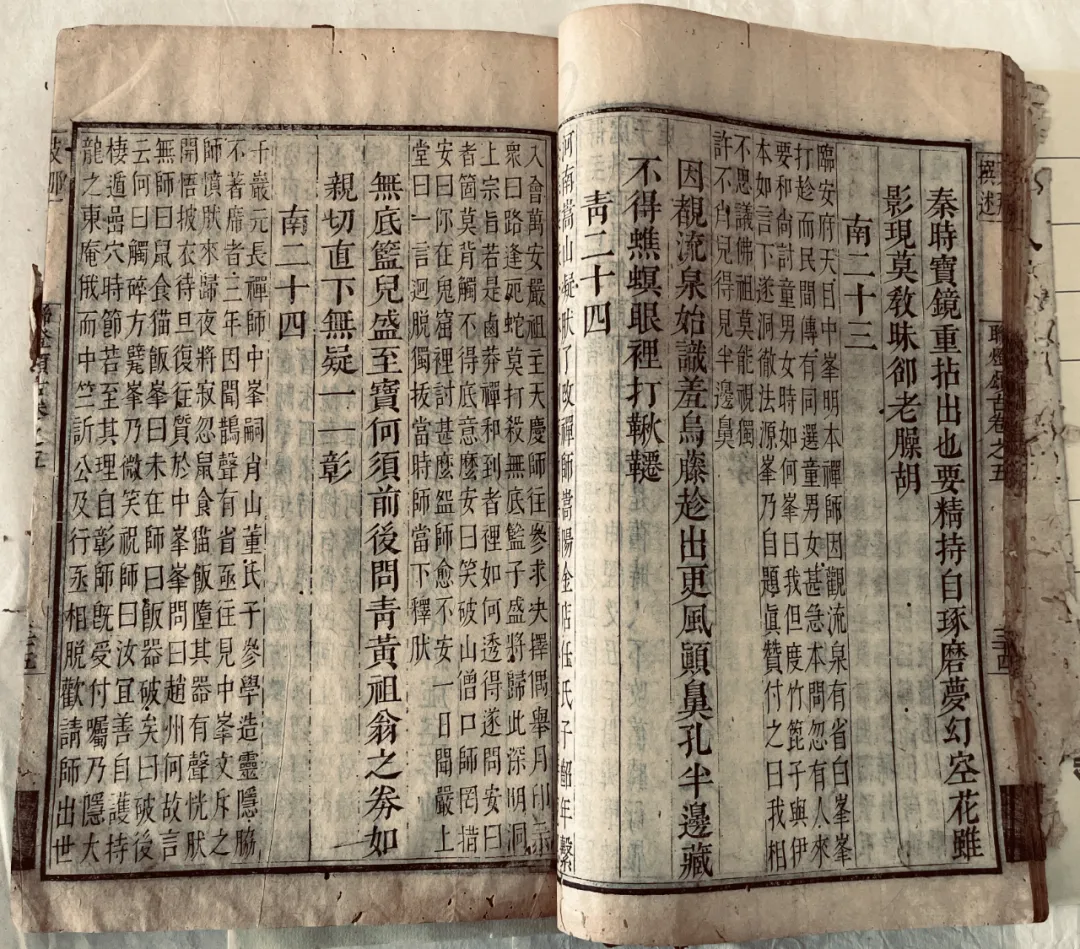 秦時寶鏡重拈出也要精持自琢磨夢幻空花雖
影現莫教昧郤老臊胡
南二十三
臨安府天目中峯明本禪師因觀流泉有省白峯峯
打趁而民間傳有同選童男女甚急本問忽有人來
要和尚討童男女時如何峯曰我但度竹篦子與伊
本如言下遂洞徹法源峯乃自題眞贊付之曰我相
不思議佛祖莫能視獨
許不肖兒得見半邊鼻
因觀流泉始識羞烏藤趁出更風顚鼻孔半邊藏
不得蟭螟眼裡打鞦韆
靑二十四
河南嵩山凝然了改禪師嵩陽金店任氏子韶年繫
入會萬安嚴祖主天慶師往參求決擇偶舉月印示
衆曰路逢死蛇莫打殺無底籃子盛將歸此深明洞
上宗旨若是鹵莽禪和到者裡如何透得遂問安曰
者箇莫背觸不得底意麼安曰笑破山僧口師罔措
安曰你在鬼窟裡討甚麼師愈不安一日聞嚴上
堂曰一言迥脫獨拔當時師當下釋肰
無底籃兒盛至寶何須前後問靑黃祖翁之券如
親切直下無疑一一彰
南二十四
千巖元長禪師中峯嗣肖山董氏子參學造靈隱脇
不著席者三年因聞鵲聲有省亟往見中峯文斥之
師憤肰來歸夜將寂忽鼠食猫飯墮其器有聲恍肰
開悟披衣待旦復往質於中峯峯問曰趙州何故言
無師曰鼠食猫飯峯曰未在師曰飯器破矣曰破後
云何曰觸碎方甓峯乃微笑祝師曰汝宜善自護持
棲遁嵓穴時節若至其理自彰師旣受付囑乃隱大
龍之東庵俄而中竺訢公及行丞相脫歡請師出世
撰述
聯燈頌古卷之五
三十四